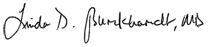 Linda D. Burckhardt, MD